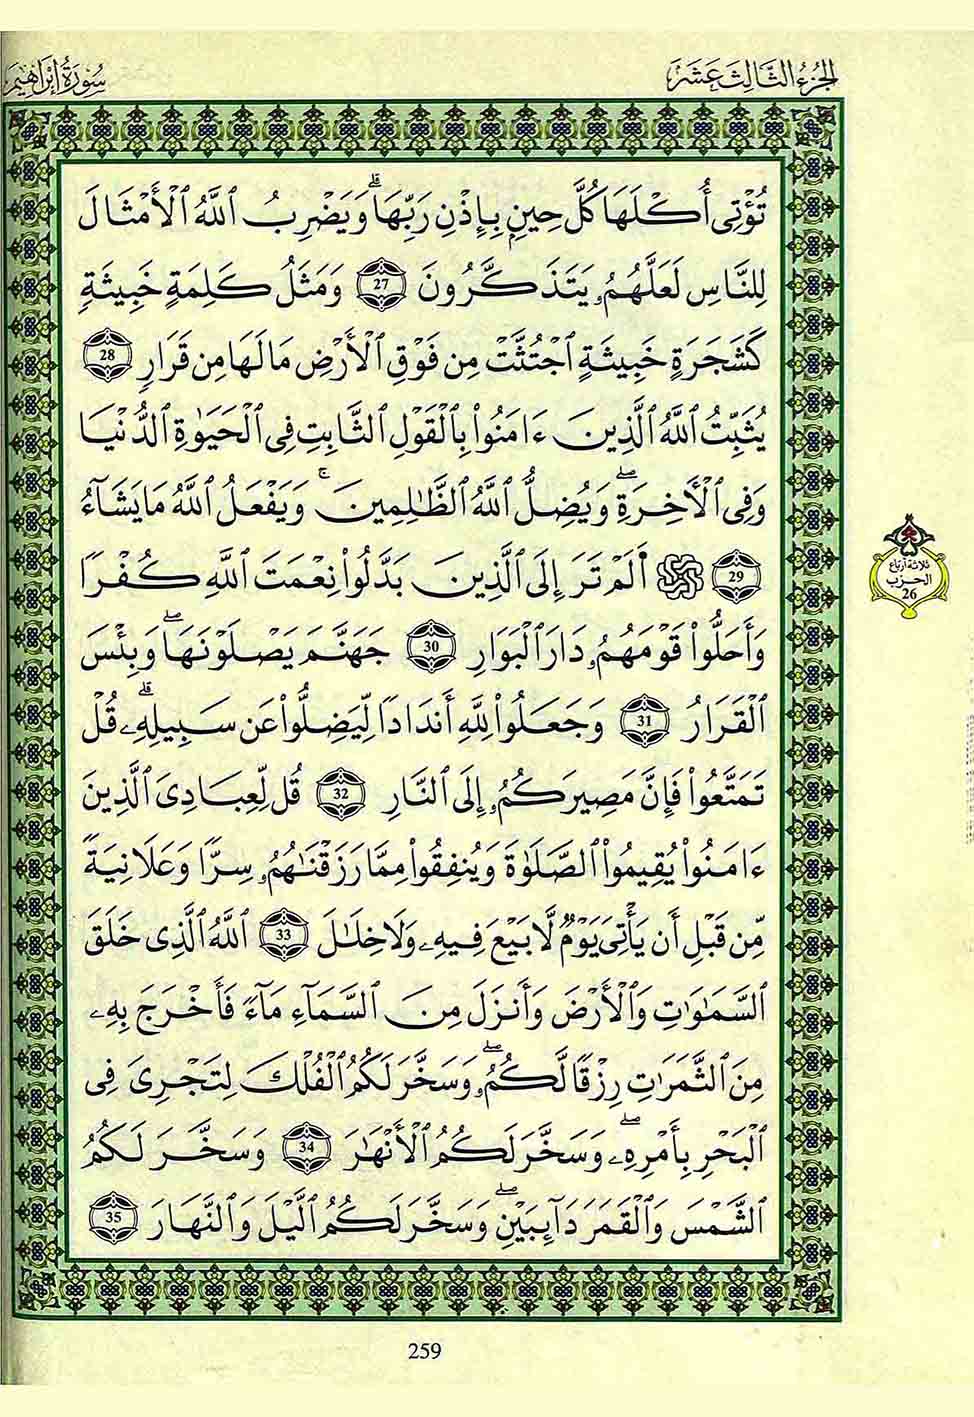 الجزء الثالث عشر
سورة إبراهيم
تُؤْتِى أُكْلَهَا كُلَّ حِينٍۭ بِإِذْنِ رَبِّهَاۗ وَيَضْرِبُ ٱللَّهُ ٱلْأَمْثَالَ
لِلنَّاسِ لَعَلَّهُمُۥ يَتَذَكَّرُونَ 27 وَمَثَلُ كَلِمَةٍ خَبِيثَةٍ
كَشَجَرَةٍ خَبِيثَةٍ ٱجْتُثَّتْ مِن فَوْقِ ٱلْأَرْضِ مَا لَهَا مِن قَرَارٍ 28
يُثَبِّتُ ٱللَّهُ ٱلَّذِينَ ءَامَنُوا۟ بِٱلْقَوْلِ ٱلثَّابِتِ فِى ٱلْحَيَوٰةِ ٱلدُّنْيَا
وَفِى ٱلْأَخِرَةِۖ وَيُضِلُّ ٱللَّهُ ٱلظَّٰلِمِينَۚ وَيَفْعَلُ ٱللَّهُ مَا يَشَآءُ
29 أَلَمْ تَرَ إِلَى ٱلَّذِينَ بَدَّلُوا۟ نِعْمَتَ ٱللَّهِ كُفْرًا
وَأَحَلُّوا۟ قَوْمَهُمُۥ دَارَ ٱلْبَوَارِ 30 جَهَنَّمَ يَصْلَوْنَهَاۖ وَبِئْسَ
ٱلْقَرَارُ 31 وَجَعَلُوا۟ لِلَّهِ أَندَادًا لِّيَضِلُّوا۟ عَن سَبِيلِهِۦۗ قُلْ
تَمَتَّعُوا۟ فَإِنَّ مَصِيرَكُمُۥ إِلَى ٱلنَّارِ 32 قُل لِّعِبَادِىَ ٱلَّذِينَ
ءَامَنُوا۟ يُقِيمُوا۟ ٱلصَّلَوٰةَ وَيُنفِقُوا۟ مِمَّا رَزَقْنَٰهُمُۥ سِرًّا وَعَلَانِيَةً
مِّن قَبْلِ أَن يَأْتِىَ يَوْمٌ لَّا بَيْعَ فِيهِۦ وَلَا خِلَٰلَ 33 ٱللَّهُ ٱلَّذِى خَلَقَ
ٱلسَّمَٰوَٰتِ وَٱلْأَرْضَ وَأَنزَلَ مِنَ ٱلسَّمَآءِ مَآءً فَأَخْرَجَ بِهِۦ
مِنَ ٱلثَّمَرَٰتِ رِزْقًا لَّكُمُۥۖ وَسَخَّرَ لَكُمُ ٱلْفُلْكَ لِتَجْرِىَ فِى
ٱلْبَحْرِ بِأَمْرِهِۦۖ وَسَخَّرَ لَكُمُ ٱلْأَنْهَٰرَ 34 وَسَخَّرَ لَكُمُ
ٱلشَّمْسَ وَٱلْقَمَرَ دَآئِبَيْنِۖ وَسَخَّرَ لَكُمُ ٱلَّيْلَ وَٱلنَّهَارَ 35
ثلاثة أرباع
الحزب
26
259